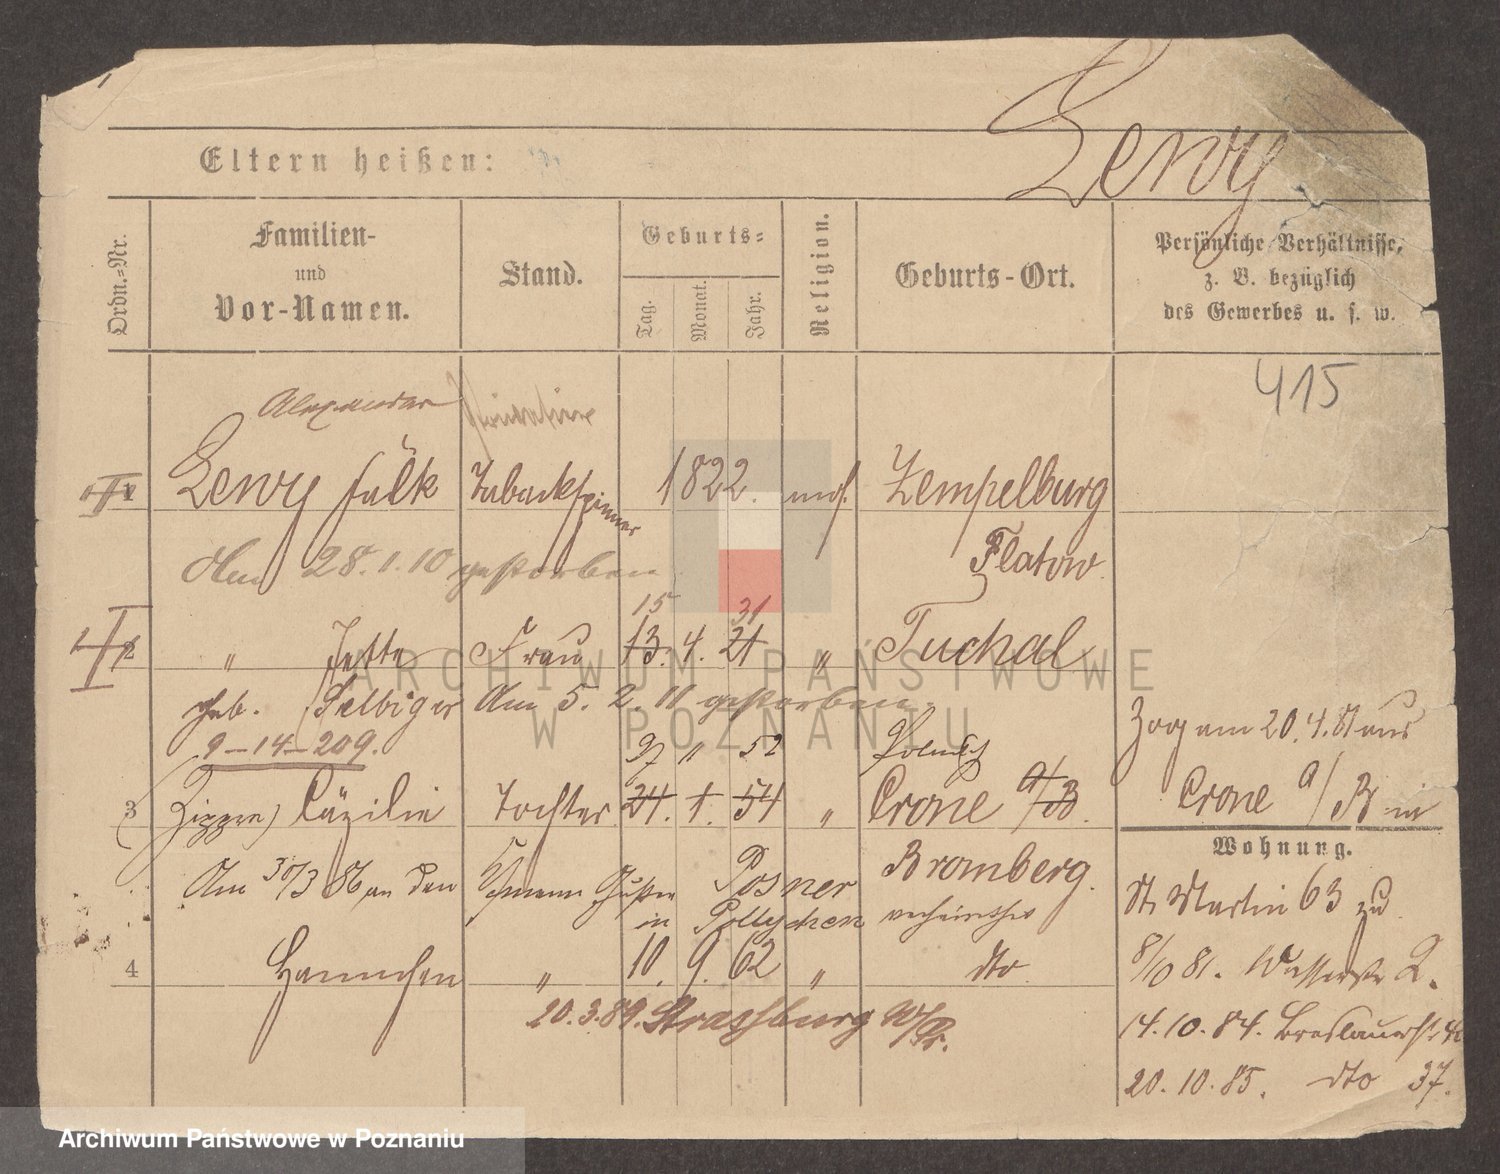 Lewy
Eltern heißen:
Ordn.-Nr.
Familien-
und
Vor-Namen.
Stand.
Geburts-
Tag.
Monat.
Jahr.
Religion.
Geburts-Ort.
Persönliche Verhältnisse,
z. B. bezüglich
des Gewerbes u. s. w.
415
Alexander
1 Lewy Falk Tabackspinner 1822. mos. Zempelburg
Flatow
Am 28.1.10 gestorben
15 31
2 " Jette Frau 13. 4. 21 " Tuchel
geb. Selbiger Am 5. 2. 11 gestorben.
9-14-209.
Zog am 20.4.81 aus
Crone a/B in
27 11 52 Polnisch
3 (Zippre) Cäzilie Tochter 24. 1. 54 " Crone a/B.
Bromberg.
Am 30/3 86 an den Posner
in Pollychen verheirathet
4 Hannchen " 10. 9. 62 " dto
20.3.89. Strassburg W/Pr.
Wohnung.
St. Martin 63 zu
8/10 81. Wasserstr 2.
14.10.84. Breslauerstr
20.10.85. dto 37.
ARCHIWUM PAŃSTWOWE
W POZNANIU
Archiwum Państwowe w Poznaniu